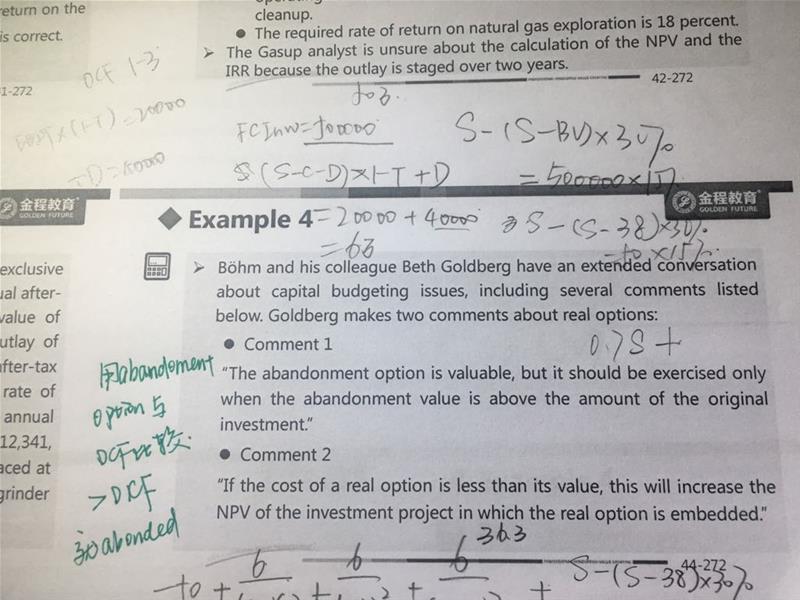 eturn on the
is correct.
cleanup.
● The required rate of return on natural gas exploration is 18 percent.
➢ The Gasup analyst is unsure about the calculation of the NPV and the
IRR because the outlay is staged over two years.
1-272
42-272
DCF 1-3
FCInv=
S-(S-BV)×30%
(S-C-D)×1-T+D
=500000×15%
金程教育
GOLDEN FUTURE
金程教育
GOLDEN FUTURE
◆ Example 4
=20000+40000
S-(S-38)×30%
=63
×15%
exclusive
ual after-
value of
utlay of
after-tax
rate of
annual
12,341,
aced at
grinder
➢ Böhm and his colleague Beth Goldberg have an extended conversation
about capital budgeting issues, including several comments listed
below. Goldberg makes two comments about real options:
● Comment 1
0.7S+
"The abandonment option is valuable, but it should be exercised only
when the abandonment value is above the amount of the original
investment."
● Comment 2
"If the cost of a real option is less than its value, this will increase the
NPV of the investment project in which the real option is embedded."
用abandoment
option与
DCF比较.
>DCF
abonded
36.3
44-272
S-(S-38)×30%